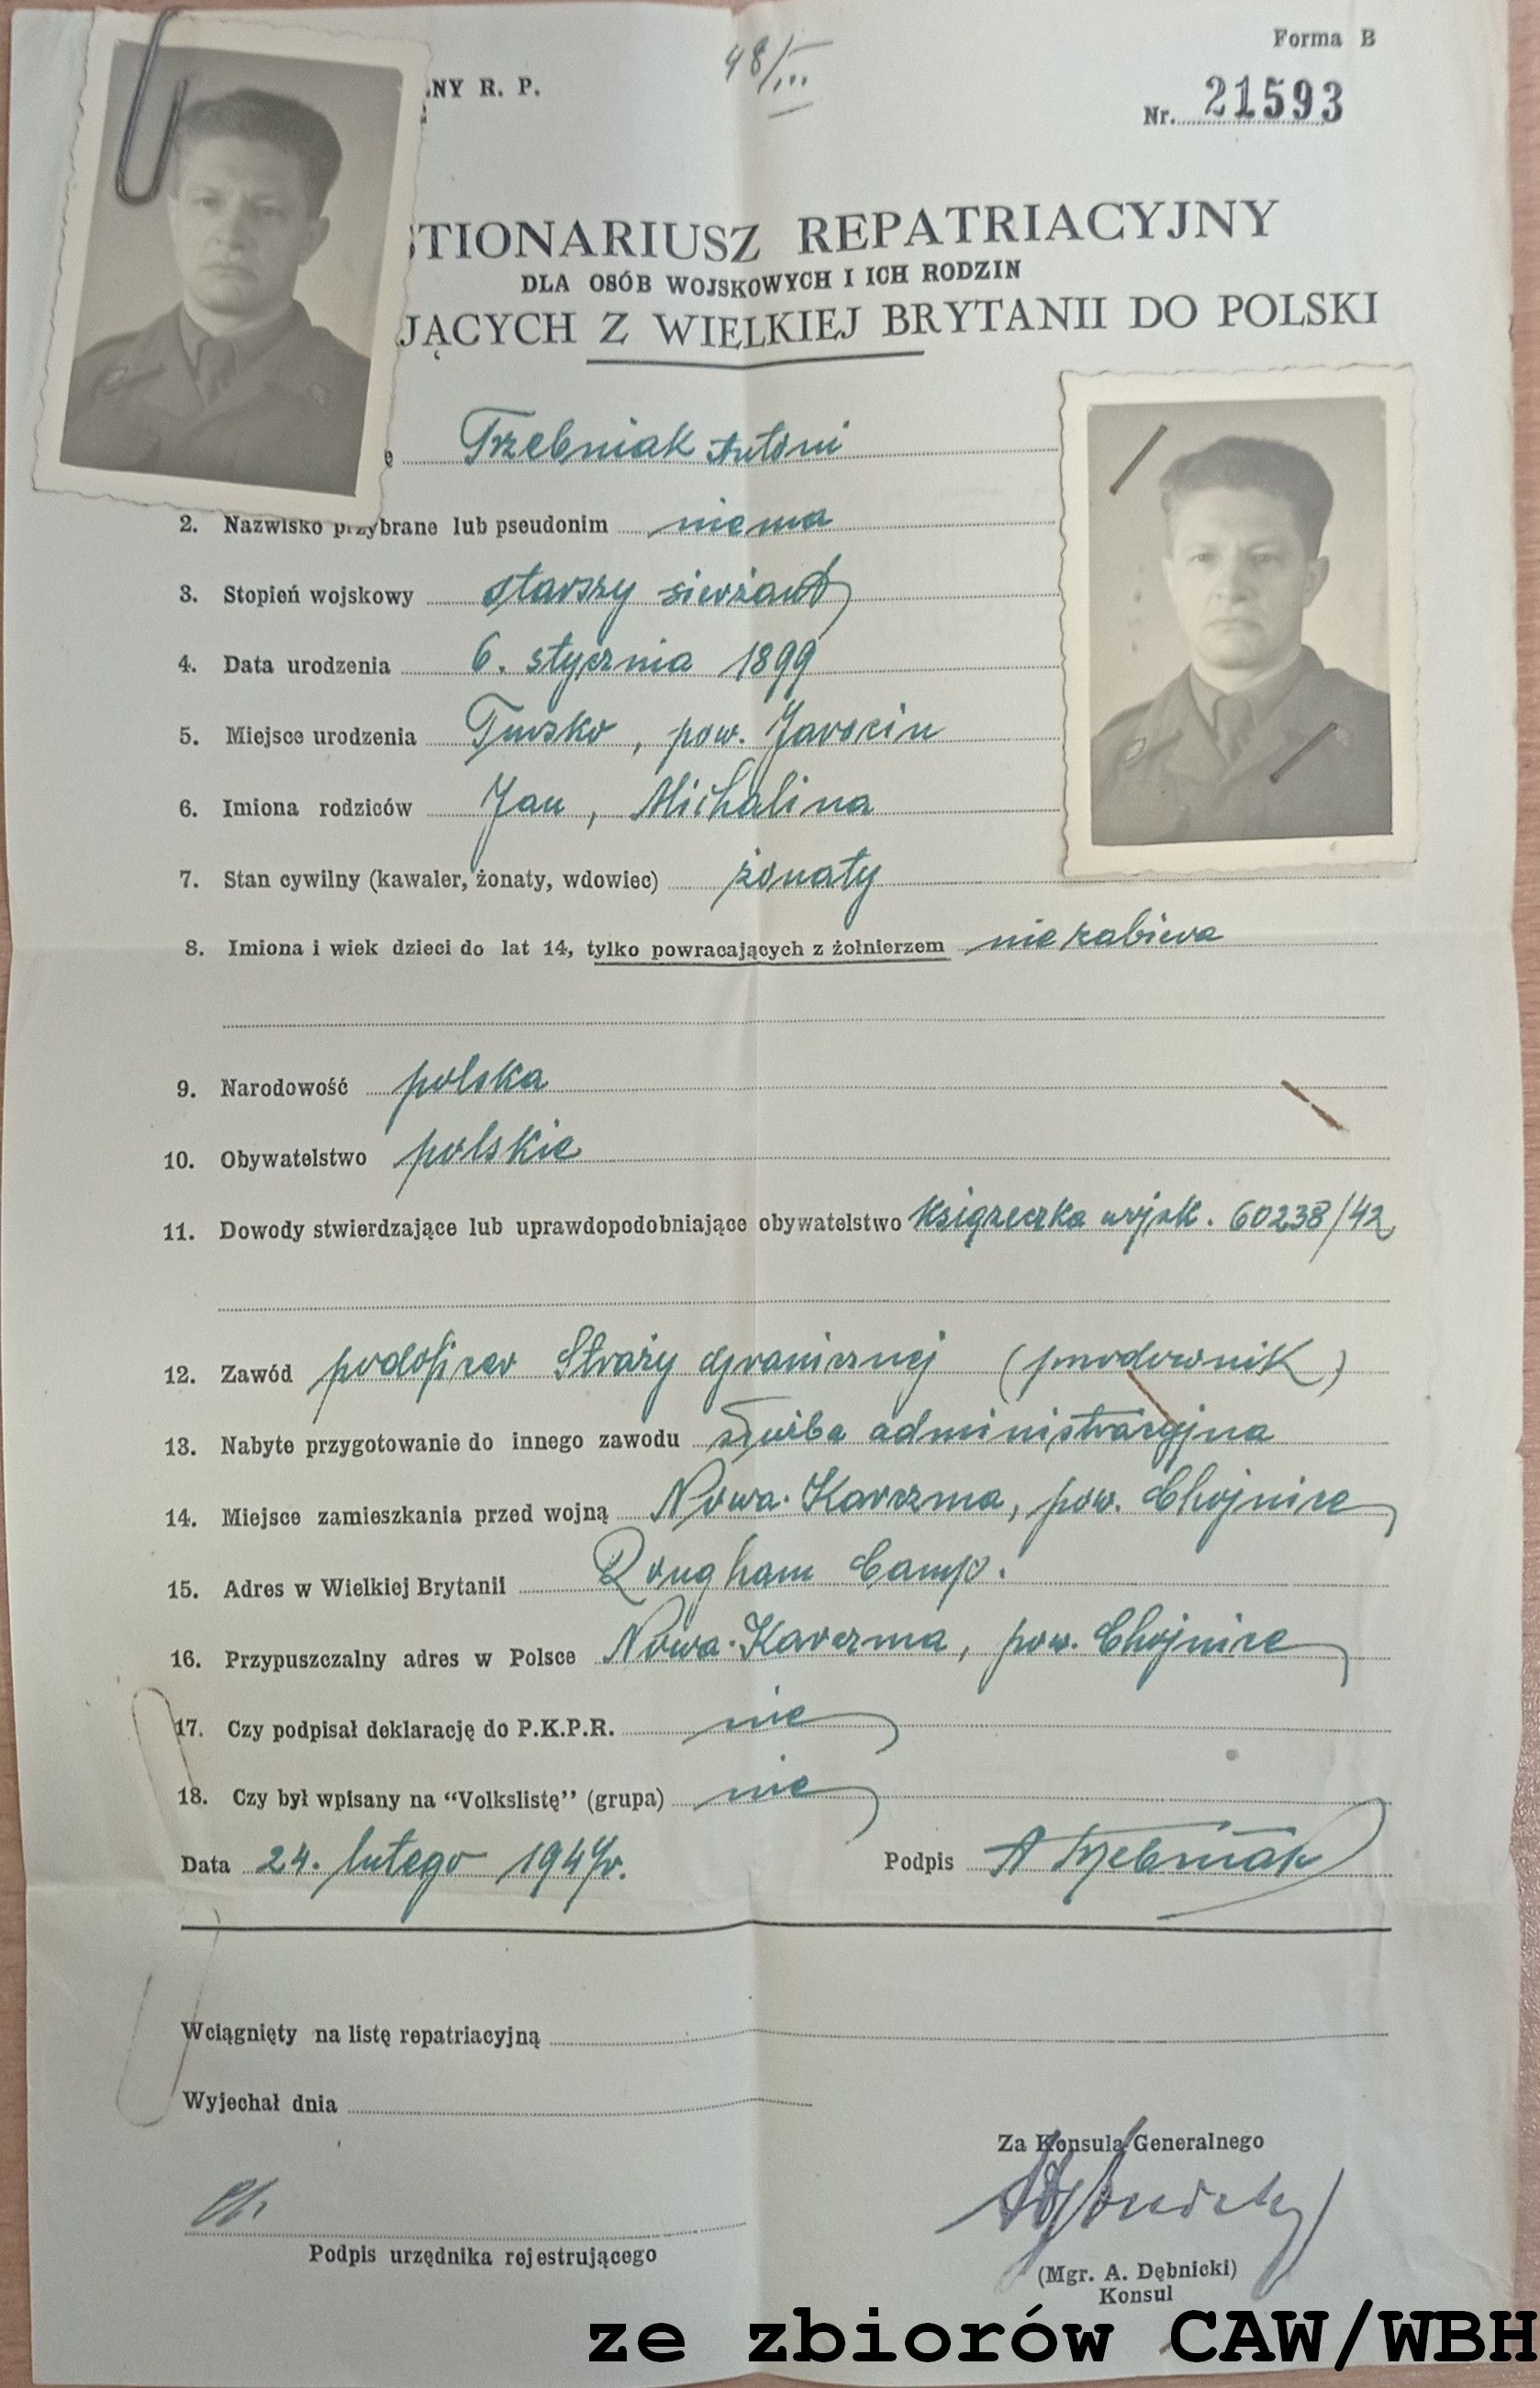 Forma B
NY R. P.
48/III
Nr. 21593
STIONARIUSZ REPATRIACYJNY
DLA OSÓB WOJSKOWYCH I ICH RODZIN
JĄCYCH Z WIELKIEJ BRYTANII DO POLSKI
Trzebniak Antoni
2. Nazwisko przybrane lub pseudonim niema
3. Stopień wojskowy starszy sierżant
4. Data urodzenia 6. stycznia 1899
5. Miejsce urodzenia Tursko, pow. Jarocin
6. Imiona rodziców Jan, Michalina
7. Stan cywilny (kawaler, żonaty, wdowiec) żonaty
8. Imiona i wiek dzieci do lat 14, tylko powracających z żołnierzem nie zabiera
9. Narodowość polska
10. Obywatelstwo polskie
11. Dowody stwierdzające lub uprawdopodobniające obywatelstwo książeczka wojsk. 60238/42
12. Zawód podoficer Straży Granicznej (przodownik)
13. Nabyte przygotowanie do innego zawodu służba administracyjna
14. Miejsce zamieszkania przed wojną Nowa-Karczma, pow. Chojnice
15. Adres w Wielkiej Brytanii Rougham Camp.
16. Przypuszczalny adres w Polsce Nowa-Karczma, pow. Chojnice
17. Czy podpisał deklarację do P.K.P.R. nie
18. Czy był wpisany na "Volkslistę" (grupa) nie
Data 24. lutego 1947r. Podpis A Trzebniak
Wciągnięty na listę repatriacyjną
Wyjechał dnia
Za Konsula Generalnego
Podpis urzędnika rejestrującego
(Mgr. A. Dębnicki)
Konsul
ze zbiorów CAW/WBH